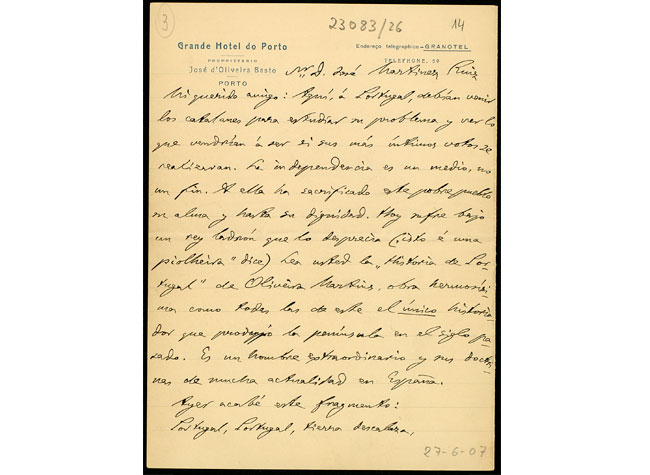 3
23083/26
14
Grande Hotel do Porto
PROPRIETARIO
José d'Oliveira Basto
PORTO
Endereço telegraphico-GRANOTEL
TELEPHONE, 59
D. José Martínez Ruiz
Mi querido amigo: Aquí, á Portugal, debían venir
los catalanes para estudiar su problema y ver lo
que vendrían á ser si sus más íntimos votos se
realizaran. La independencia es un medio, no
un fin. A ella ha sacrificado este pobre pueblo
su alma y hasta su dignidad. Hoy sufre bajo
un rey ladrón que lo desprecia ("isto é una
piolheira" dice) Lea usted la "Historia de Por-
tugal" de Oliveira Martins, obra hermosísi-
ma como todas las de este el único historia-
dor que produjo la península en el siglo pa-
sado. Es un hombre extraordinario y sus doctri-
nas de mucha actualidad en España.
Ayer acabé este fragmento:
Portugal, Portugal, tierra descalza,
27-6-07